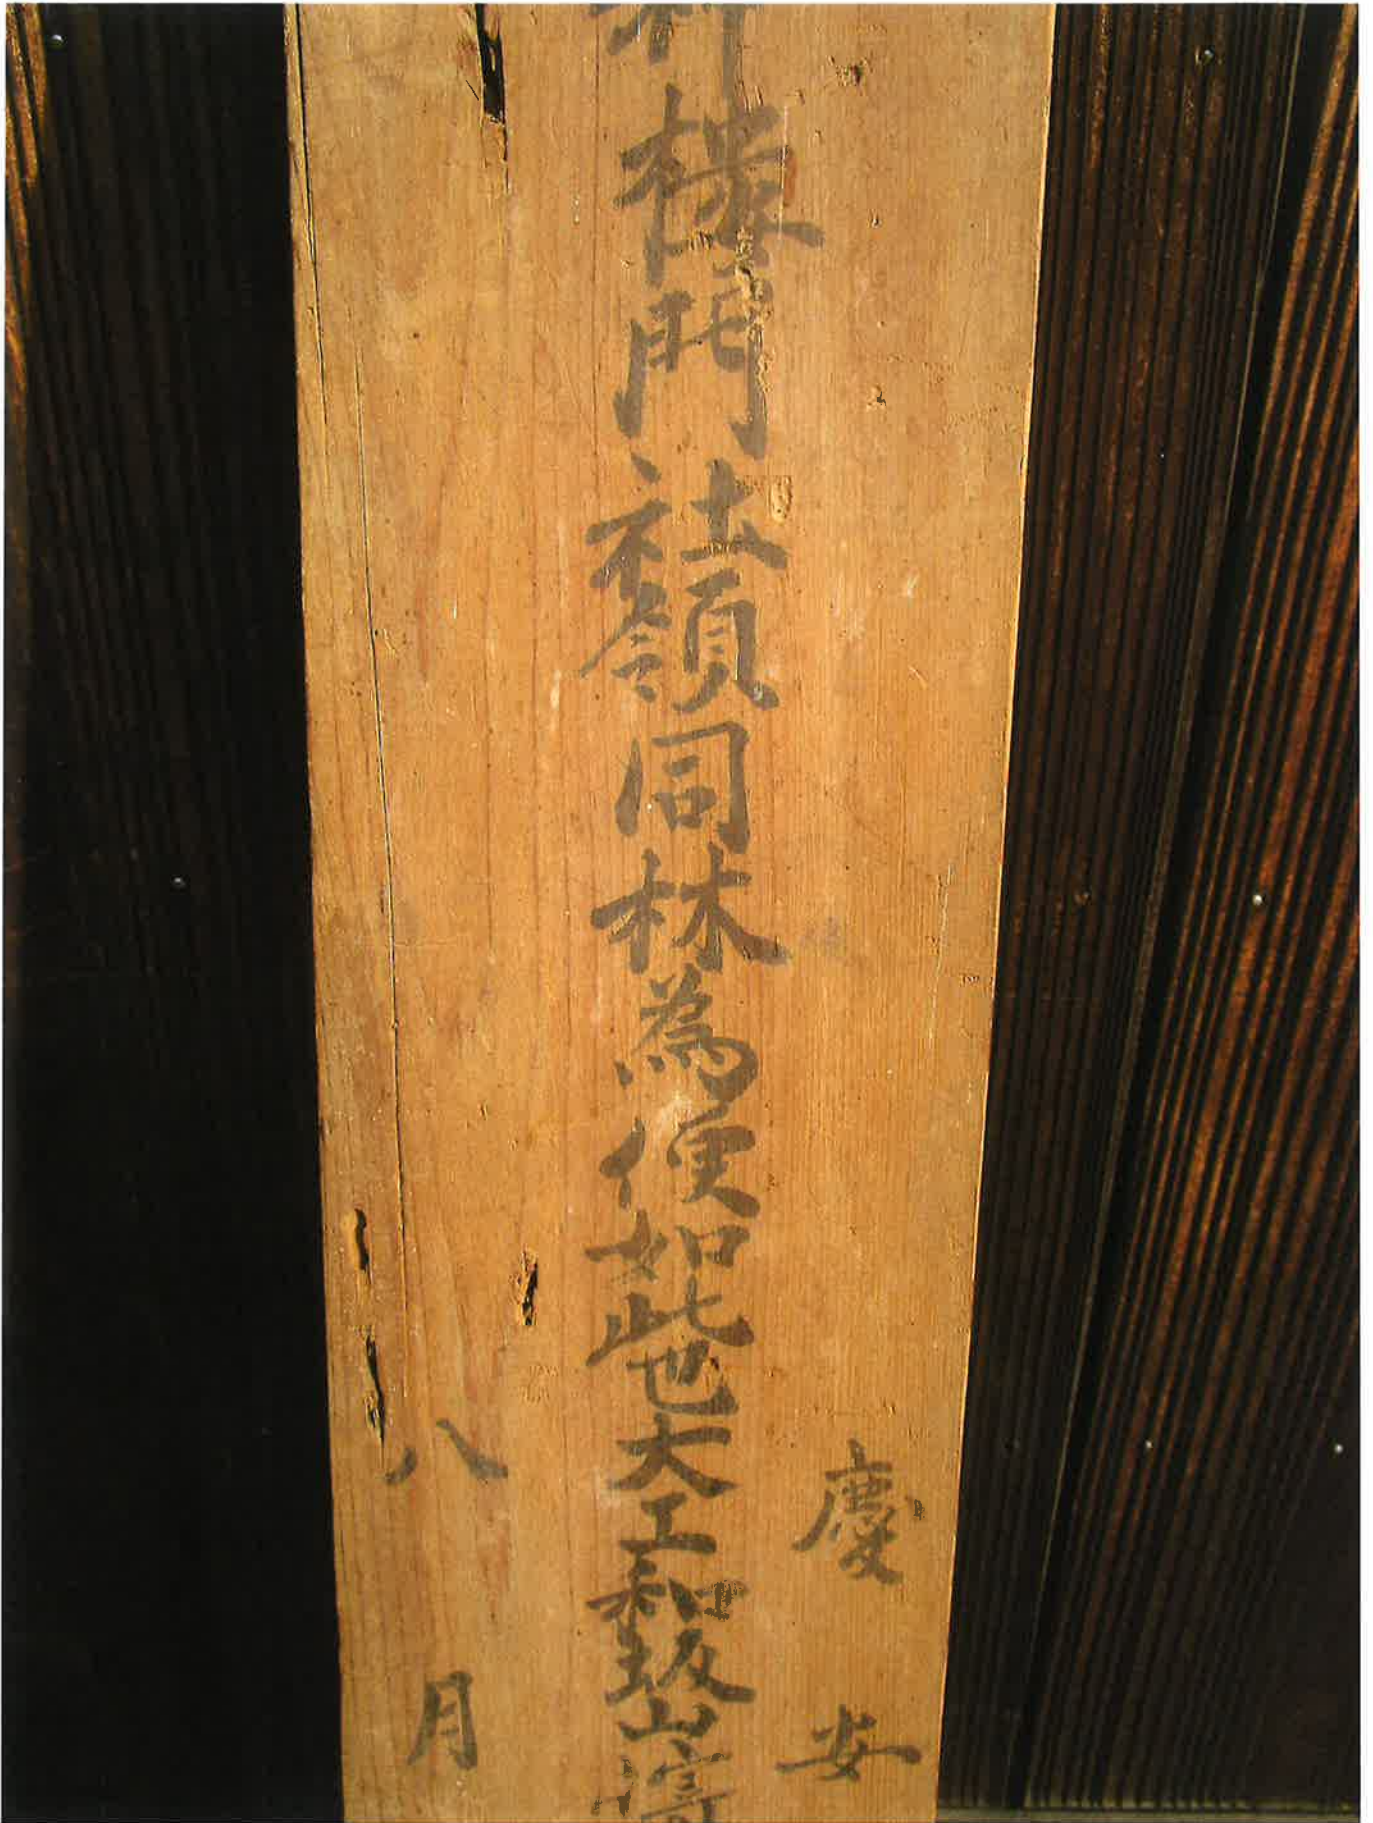 慶安
樓門社領同林為便如此也大工和坂山
八月